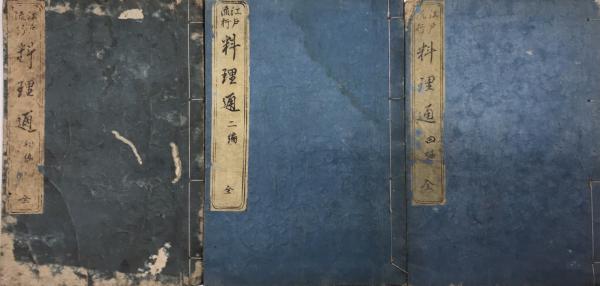 江戸
流行
料理通
初編
全
江戸
流行
料理通
二編
全
江戸
流行
料理通
四編
全